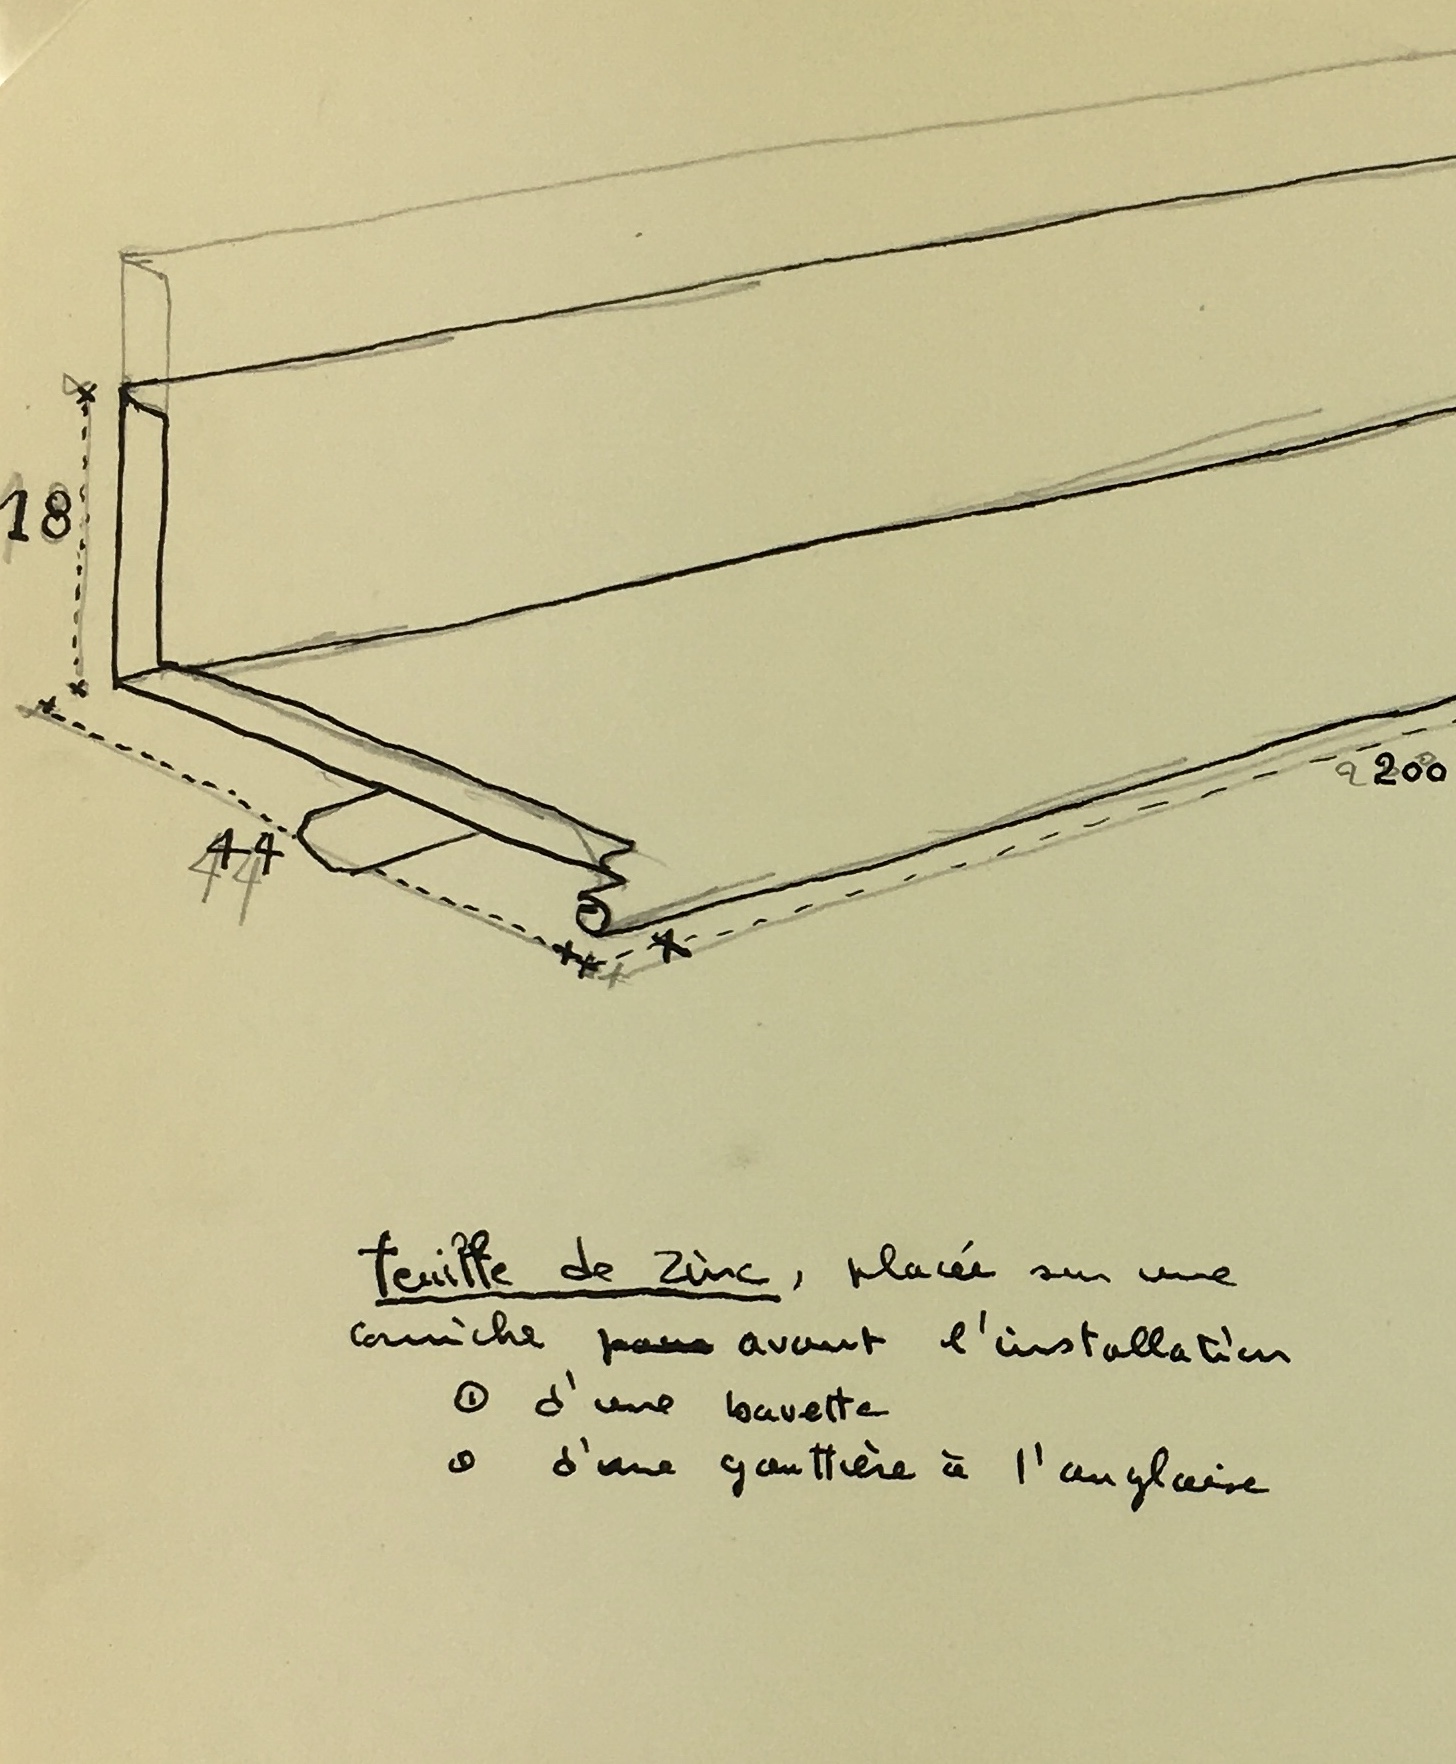 18
44
200
feuille de zinc, placée sur une
corniche pour avant l'installation
① d'une bavette
o d'une gouttière à l'anglaise